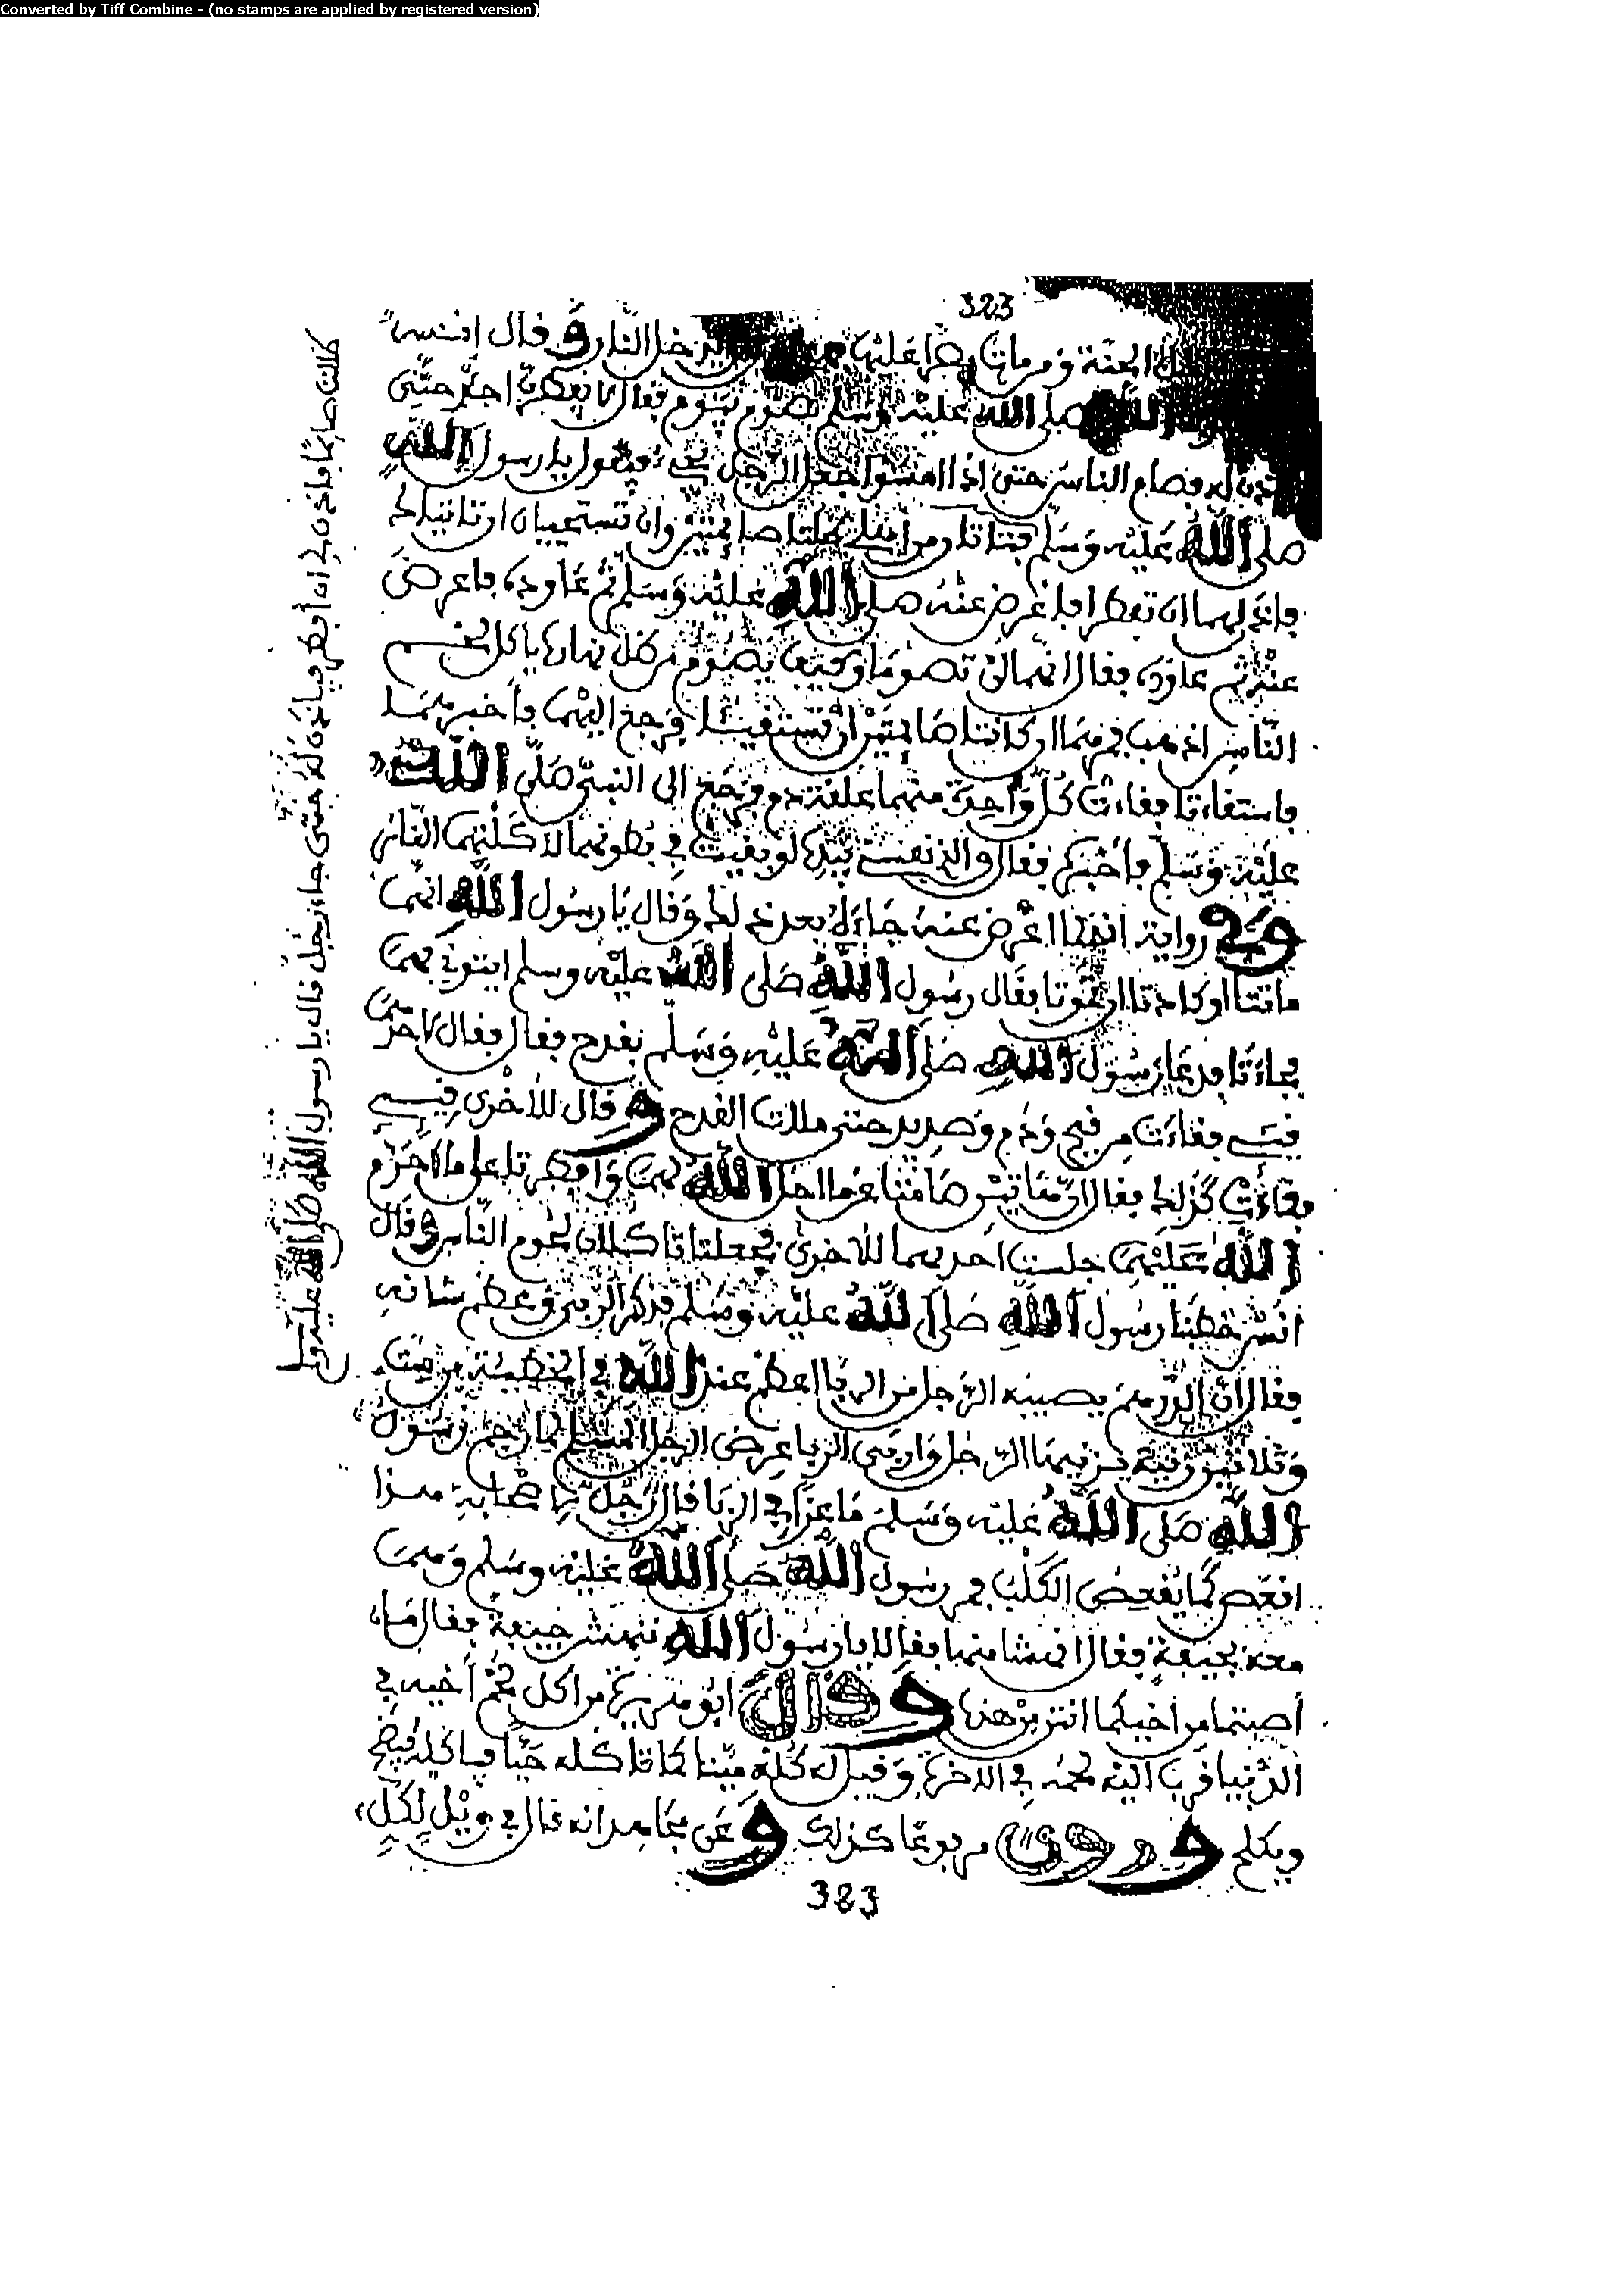 Converted by Tiff Combine - (no stamps are applied by registered version)
323
الجنة ومن مات مصرا عليها يدخل النار وقال انس
الله صلى الله عليه وسلم بصوم يوم فقال لا يفطرن احد حتى
اذن له فصام الناس حتى اذا امسوا جعل الرجل يجيء فيقول يا رسول الله
صلى الله عليه وسلم فتاتان من اهلي ظلتا صائمتين وان تستحييان ان تاتياك
فاذن لهما ان تفطرا فاعرض عنه صلى الله عليه وسلم ثم عاوده فاعرض
عنه ثم عاوده فقال انهما لن تصوما وكيف يصوم من ظل نهاره ياكل لحم
الناس اذهب فمرهما ان كانتا صائمتين ان تستقيئا فرجع اليهما فاخبرهما
فاستقاءتا فقاءت كل واحدة منهما علقة دم فرجع الى النبي صلى الله
عليه وسلم فأخبره فقال والذي نفسي بيده لو بقيت في بطونهما لأكلتهما النار
وفي رواية انه لما اعرض عنه جاءه بعد ذلك وقال يا رسول الله انهما
ماتتا او كادتا ان تموتا فقال رسول الله صلى الله عليه وسلم ايتوني بهما
فجاءتا فدعا رسول الله صلى الله عليه وسلم بقدح فقال لاحديهما
قيئي فقاءت من قيح ودم وصديد حتى ملات القدح وقال للأخرى قيئي
فقاءت كذلك فقال ان هاتين صامتا عما احل الله لهما وافطرتا على ما احرم
الله عليهما جلست احديهما للأخرى فجعلتا تاكلان لحوم الناس وقال
انس خطبنا رسول الله صلى الله عليه وسلم فذكر الربى وعظم شانه
فقال ان الدرهم يصيبه الرجل من الربا اعظم عند الله في الخطيئة من ست
وثلاثين زنية يزنيها الرجل واربى الربا عرض الرجل المسلم لما رجم رسول
الله صلى الله عليه وسلم ماعزا في الزنا قال رجل لصاحبه هذا
اقعص كما يقعص الكلب فمر رسول الله صلى الله عليه وسلم وهما
معه بجيفة فقال انهشا منها فقالا يا رسول الله ننهش جيفة فقال ما
أصبتما من اخيكما انتن من هذه وقال ابو هريرة من اكل لحم أخيه في
الدنيا قرب اليه لحمه في الاخرة وقيل له كله ميتا كما تاكله حيا فياكله فيضج
ويكلح وروي مرفوعا كذلك وعن مجاهد انه قال في ويل لكل
383
ظلت صائما فاذن لي ان أفطر فياذن له حتى جاء رجل قال يا رسول الله صلى الله عليه وسلم